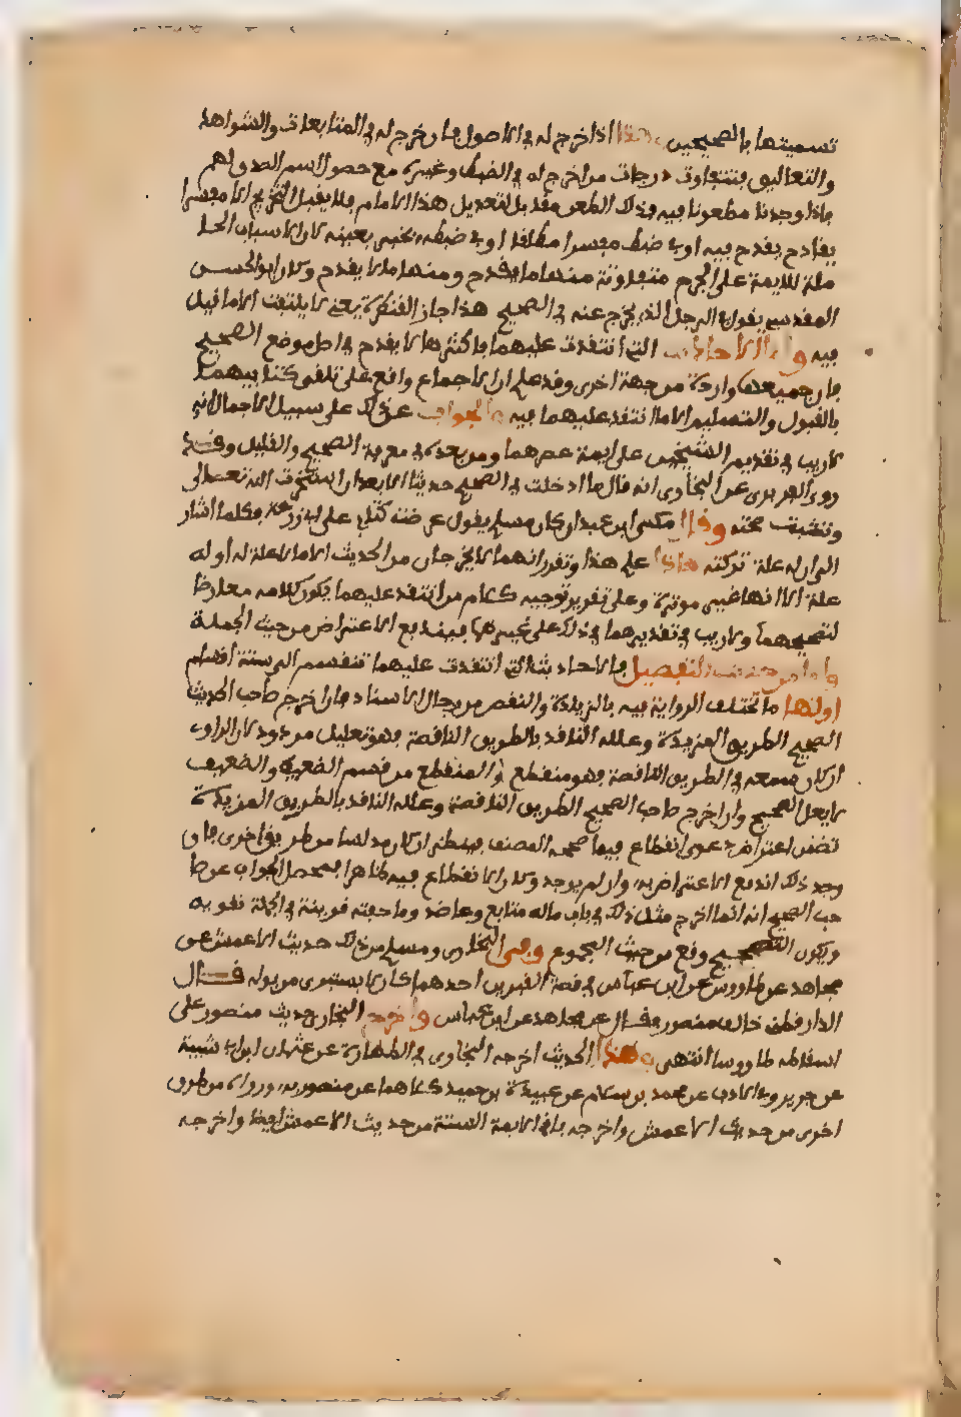 تسميتها بالصحيحين هذا اذا خرج له في الاصول فان خرج له في المتابعات والشواهد
والتعاليق فتتفاوت درجات من اخرج له في الضبط وغيره مع حصول اسم الصدق لهم
فاذا وجدنا مطعونا فيه فذلك الطعن مقابل لتعديل هذا الامام فلا يقبل التجريح الا مفسرا
بقادح يقدح فيه او في ضبطه مفسرا مطلقا او في ضبطه لخبر بعينه لان الاسباب الحا
ملة للايمة على الجرح متفاوتة منها ما يقدح ومنها ما لا يقدح وكان ابو الحسن
المقدسي يقول في الرجل الذي يخرج عنه في الصحيح هذا جاز القنطرة يعني لا يلتفت الى ما قيل
فيه واما الاحاديث التي انتقدت عليهما فاكثرها لا يقدح في اصل موضع الصحيح
فان جميعها واردة من جهة اخرى وقد علم ان الاجماع واقع على تلقي كتابيهما
بالقبول والتسليم الا ما انتقد عليهما فيه والجواب عن ذلك على سبيل الاجمال انه
لا ريب في تقديم الشيخين على ايمة عصرهما ومن بعده في معرفة الصحيح والعليل وقد
روى الفربري عن البخاري انه قال ما ادخلت في الصحيح حديثا الا بعد ان استخرت الله تعالى
وتثبت صحته وقال مكي ابن عبدان كان مسلم يقول عرضت كتابي على ابي زرعة فكلما اشار
الي ان له علة تركته فاذا علم هذا وتقرر انهما لا يخرجان من الحديث الا ما لا علة له او له
علة الا انها غير موثرة وعلى تقرير توجيه كلام من انتقد عليهما يكون كلامه معارضا
لتصحيحهما ولا ريب في تقديمهما في ذلك على غيرهما فيندفع الاعتراض من حيث الجملة
واما من حيث التفصيل فالاحاديث التي انتقدت عليهما تنقسم الى ستة اقسام
اولها ما تختلف الرواية فيه بالزيادة والنقص من رجال الاسناد فان اخرج صاحب الحديث
الصحيح الطريق المزيدة وعلله الناقد بالطريق الناقصة فهو تعليل مردود لان الراوي
ان كان سمعه في الطريق الناقصة فهو منقطع او المنقطع من قسم الضعيف والضعيف
لا يعل الصحيح وان اخرج صاحب الصحيح الطريق الناقصة وعلله الناقد بالطريق المزيدة
تضمن اعتراضه دعوى انقطاع فيما صححه المصنف فينظر ان كان مدلسا من طريق اخرى فان
وجد ذلك اندفع الاعتراض به وان لم يوجد وكان الانقطاع فيه ظاهرا فمحصل الجواب عن صا
حب الصحيح انه انما اخرج مثل ذلك في باب ماله متابع وعاضد وما حفته قرينة في الجملة تقويه
ويكون التصحيح وقع من حيث المجموع وفي البخاري ومسلم من ذلك حديث الاعمش عن
مجاهد عن طاووس عن ابن عباس في قصة القبرين احدهما كان لا يستبرى من بوله قال
الدارقطني خالف منصور فقال عن مجاهد عن ابن عباس واخرج البخاري حديث منصور على
اسقاطه طاووسا انتهى وهذا الحديث اخرجه البخاري في الطهارة عن عثمان ابن ابي شيبة
عن جرير وفي الادب عن محمد بن سلام عن عبيدة بن حميد كلاهما عن منصور به ورواه من طرق
اخرى من حديث الاعمش واخرجه باقي الايمة الستة من حديث الاعمش ايضا واخرجه